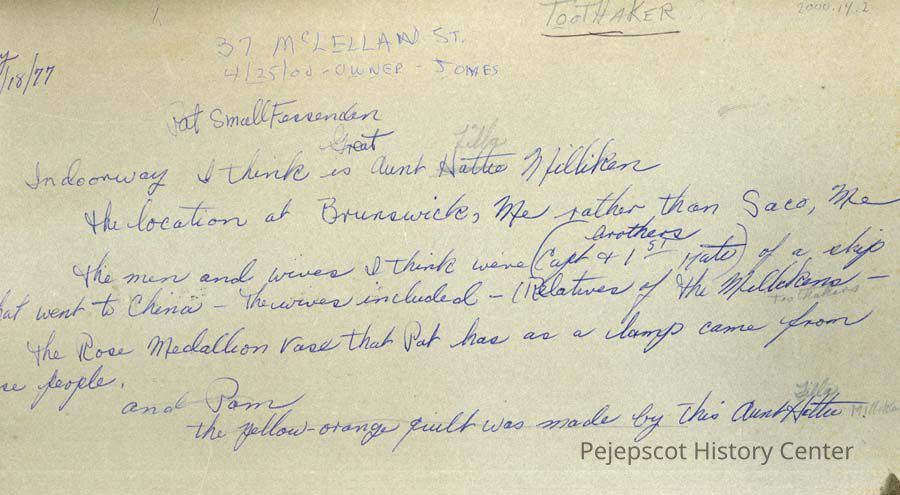 TOOTHAKER
2000.14.2
37 McLELLAND ST.
4/25/00 - OWNER - JONES
/18/77
Pat Small Fessenden
Great Tilly
In doorway I think is Aunt Hattie Milliken
the location at Brunswick, Me rather than Saco, Me
brothers
the men and wives I think were (Capt & 1st Mate) of a ship
hat went to China - the wives included - (Relatives of the Millikens -
Toothakers
the Rose Medallion vase that Pat has as a lamp came from
se people.
and Pam Tilly
the yellow-orange quilt was made by this Aunt Hattie Millike
Pejepscot History Center